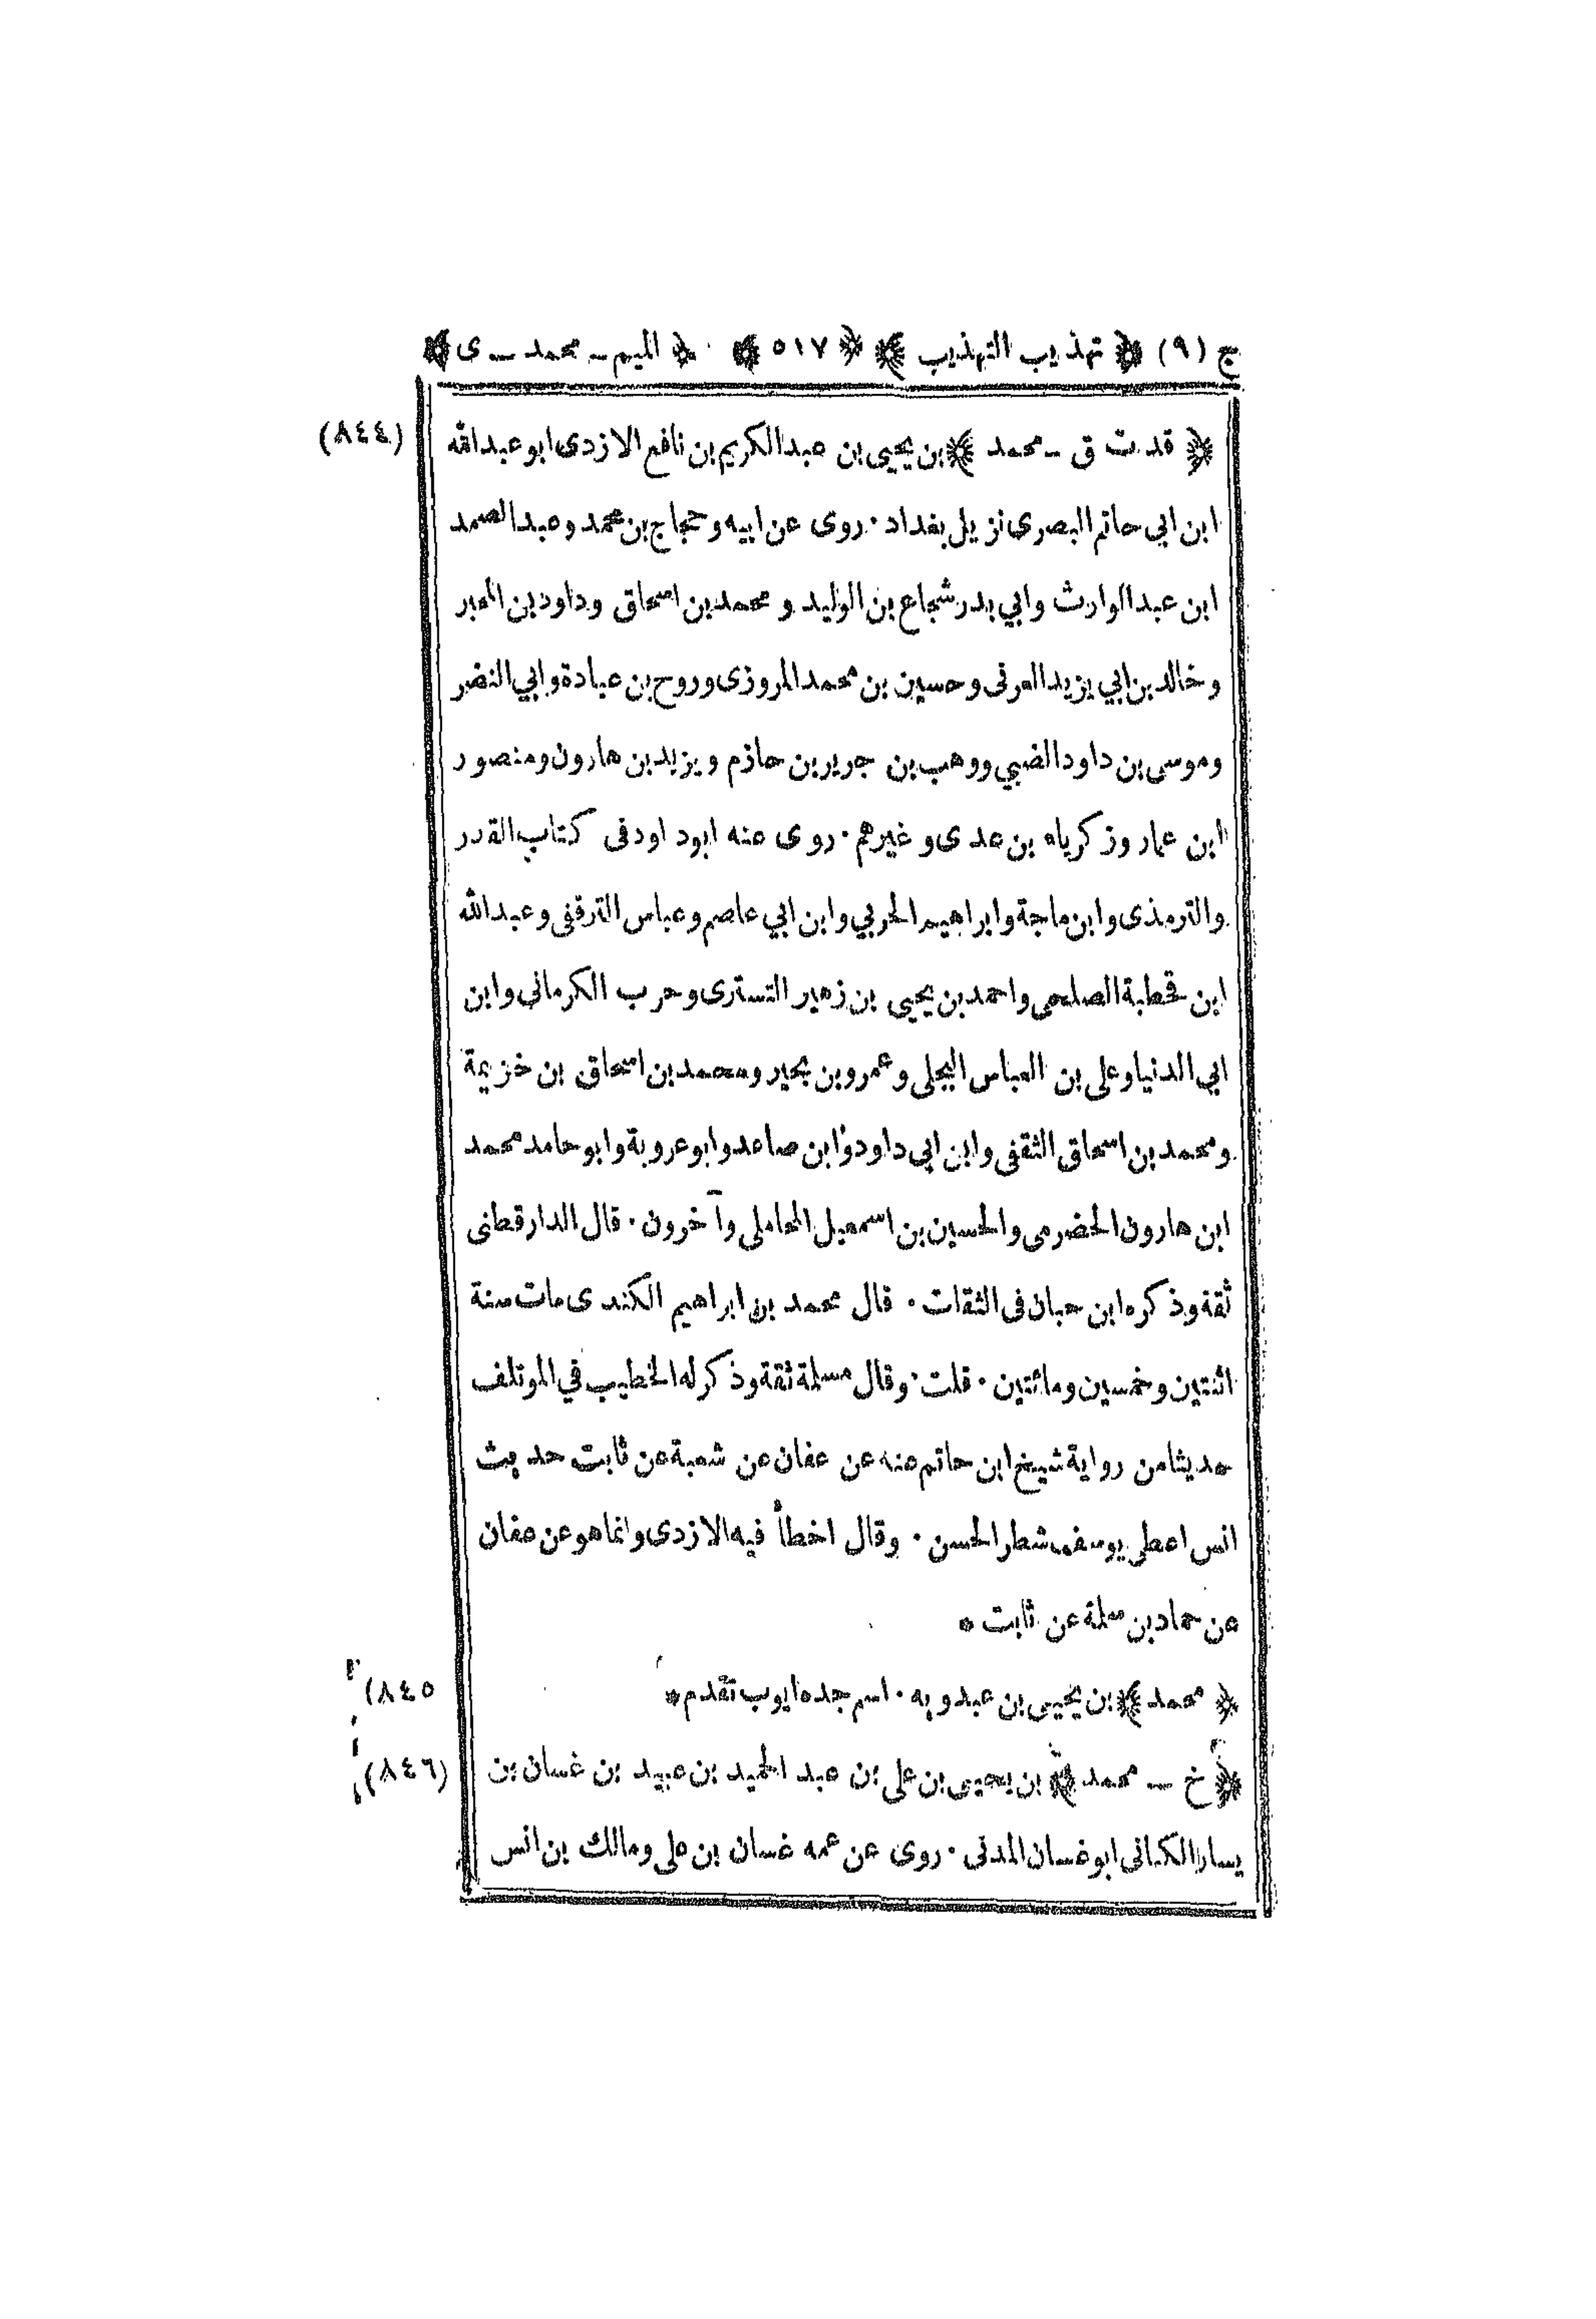 ج (٩) ﴿ تهذيب التهذيب ﴾ ﴿ ٥١٧ ﴾ ﴿ الميم - محمد - ى ﴾
(٨٤٤) ﴿ قد ت ق - محمد ﴾ بن يحيى بن عبد الكريم بن نافع الازدى ابو عبد الله
ابن ابي حاتم البصرى نزيل بغداد. روى عن ابيه وحجاج بن محمد وعبد الصمد
ابن عبد الوارث وابي بدر شجاع بن الوليد و محمد بن اسحاق وداود بن المحبر
وخالد بن ابي يزيد العرقى وحسين بن محمد المروزى وروح بن عبادة وابي النضر
وموسى بن داود الضبي ووهب بن جرير بن حازم ويزيد بن هارون ومنصور
ابن عمار وزكرياه بن عدى وغيرهم. روى عنه ابوداود فى كتاب القدر
والترمذى وابن ماجة وابراهيم الحربي وابن ابي عاصم وعباس الترقفى وعبد الله
ابن قحطبة الصلحى واحمد بن يحيى بن زهير التسترى وحرب الكرماني وابن
ابي الدنيا وعلى بن العباس البجلى وعمرو بن بحير ومحمد بن اسحاق بن خزيمة
ومحمد بن اسحاق الثقفى وابن ابي داود وابن صاعد وابو عروبة وابو حامد محمد
ابن هارون الحضرمى والحسين بن اسمعيل المحاملى وآخرون. قال الدارقطنى
ثقة وذكره ابن حبان فى الثقات. قال محمد بن ابراهيم الكندى مات سنة
اثنتين وخمسين ومائتين. قلت. وقال مسلمة ثقة وذكر له الخطيب في الموتلف
حديثا من رواية شيخ ابن حاتم عنه عن عفان عن شعبة عن ثابت حديث
انس اعطى يوسف شطر الحسن. وقال اخطأ فيه الازدى وانما هو عن عفان
عن حماد بن سلمة عن ثابت *
(٨٤٥ ﴿ محمد ﴾ بن يحيى بن عبدويه. اسم جده ايوب تقدم *
(٨٤٦) ﴿ خ - محمد ﴾ بن يحيى بن على بن عبد الحميد بن عبيد بن غسان بن
يسار الكنانى ابو غسان المدنى. روى عن عمه غسان بن على ومالك بن انس